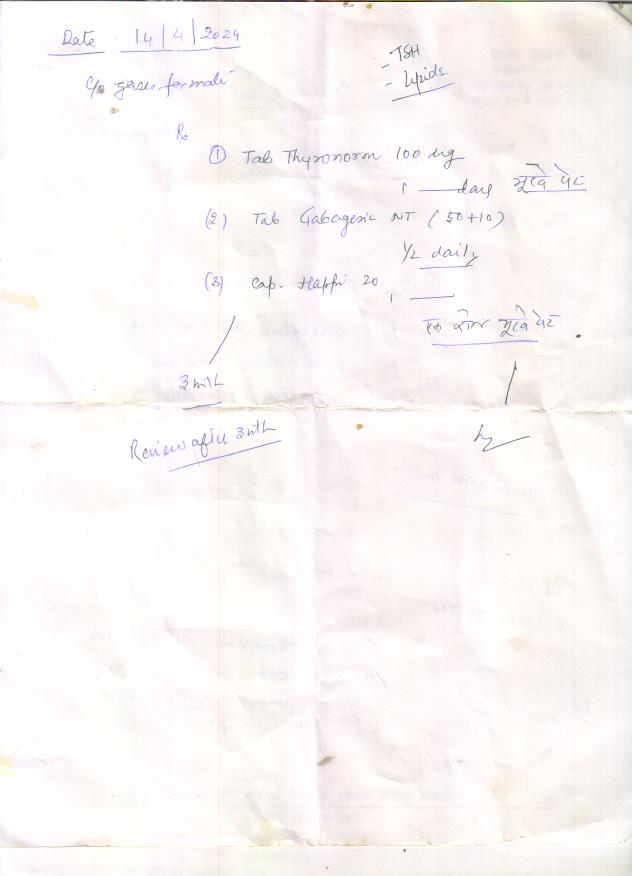 Date 14/4/2024
- TSH
- Lipids.
c/o gases formati
Rx
① Tab Thyronorm 100 ug
1 — daily भूखे पेट
(2) Tab Gabagesic NT (50+10)
1/2 daily
(3) Cap. Happi 20
1 —
भूखे पेट
3 mth
Review after 3 mth